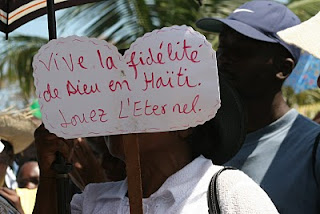 Vive la fidélité
de Dieu en Haïti.
Louez L'Eternel.